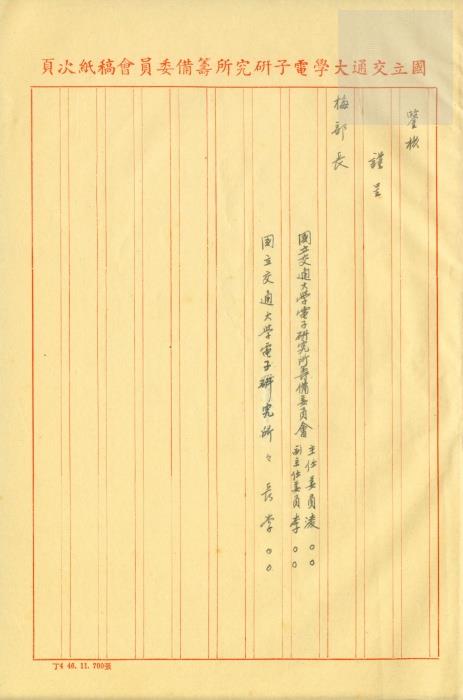 國立交通大學電子研究所籌備委員會稿紙次頁
鑒核
謹呈
梅部長
國立交通大學電子研究所籌備委員會
主任委員凌○○
副主任委員李○○
國立交通大學電子研究所々長李○○
丁4 46.11.700張